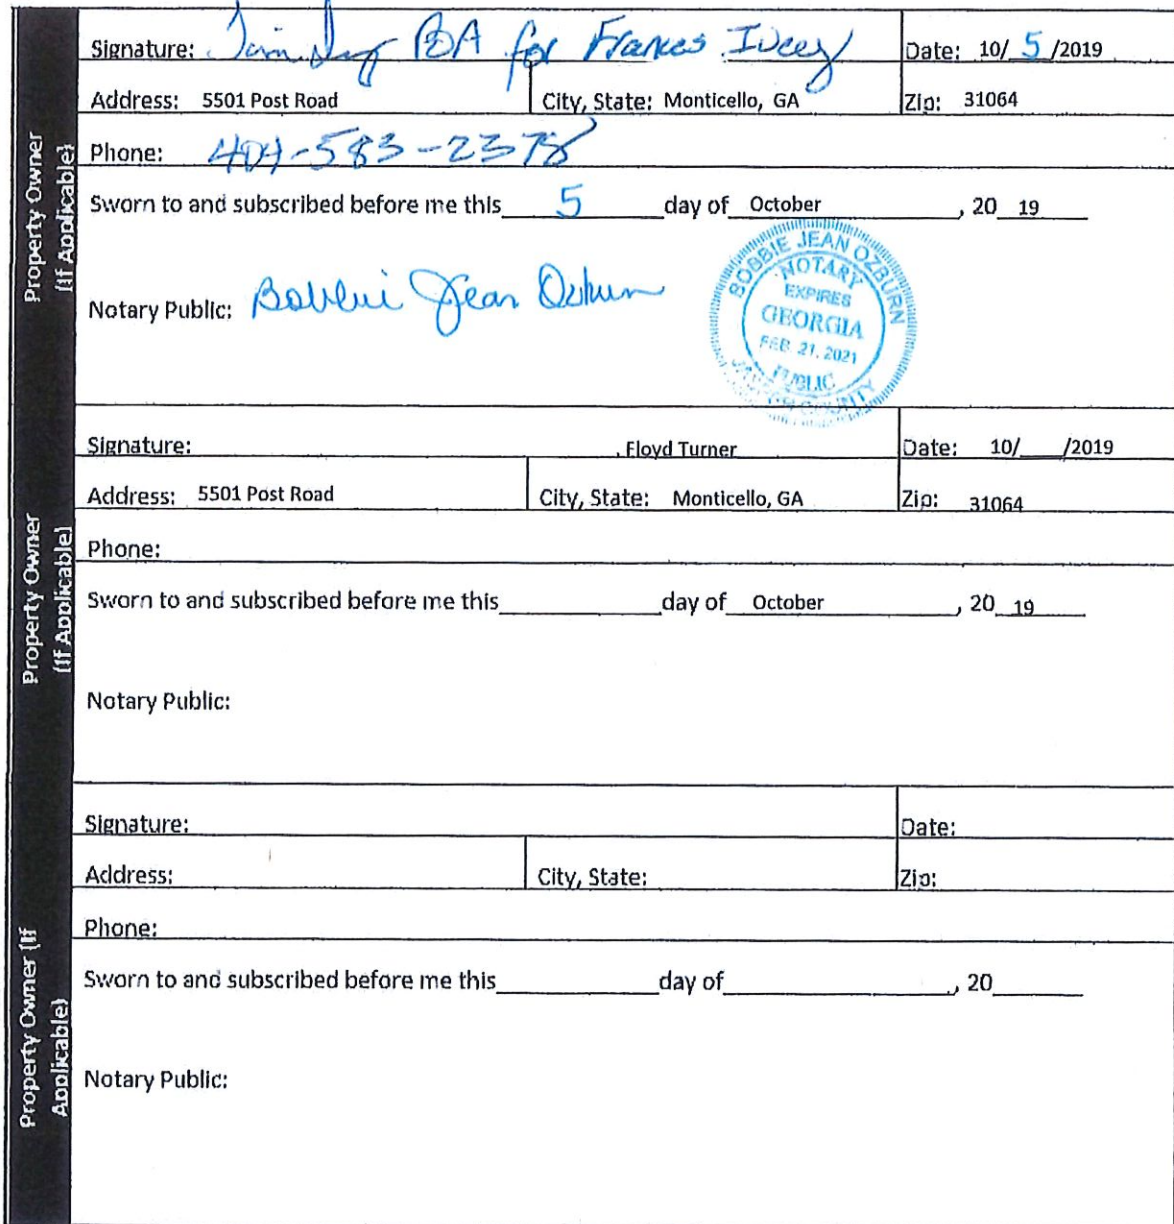 Property Owner
(If Applicable)
Signature: POA for Frances Ivey Date: 10/ 5 /2019
Address: 5501 Post Road City, State: Monticello, GA Zip: 31064
Phone: 404-583-2378
Sworn to and subscribed before me this 5 day of October , 20 19
Notary Public: Bobbie Jean Ozburn
BOBBIE JEAN OZBURN
NOTARY
EXPIRES
GEORGIA
FEB. 21, 2021
PUBLIC
COUNTY
Property Owner
(If Applicable)
Signature: , Floyd Turner Date: 10/ /2019
Address: 5501 Post Road City, State: Monticello, GA Zip: 31064
Phone:
Sworn to and subscribed before me this day of October , 20 19
Notary Public:
Property Owner (If
Applicable)
Signature: Date:
Address: City, State: Zip:
Phone:
Sworn to and subscribed before me this day of , 20
Notary Public: